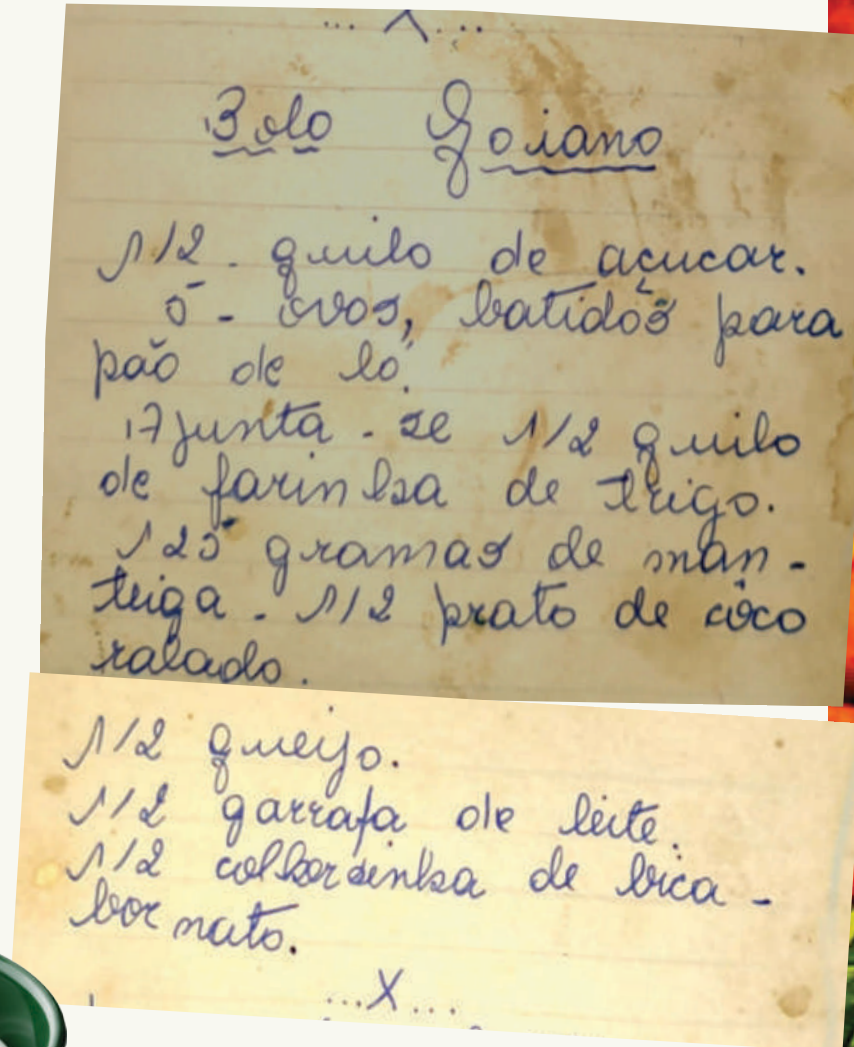 ... X ...
Bolo Goiano
1/2 - quilo de açucar.
5 - ovos, batidos para
pão de ló.
Ajunta-se 1/2 quilo
de farinha de trigo.
125 gramas de man-
teiga - 1/2 prato de côco
ralado.
1/2 queijo.
1/2 garrafa de leite.
1/2 colhersinha de bica-
bornato.
...X...